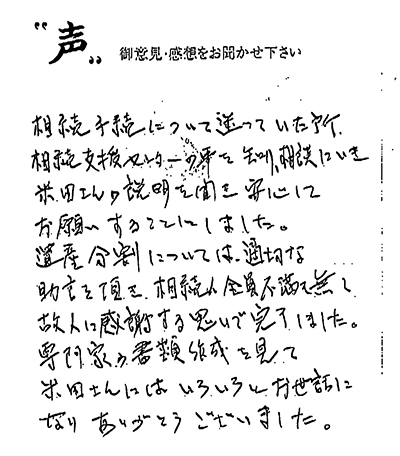 "声"
御意見・感想をお聞かせ下さい
相続手続について迷っていた所、
相続支援センターの事を知り、相談にいき
米田さんの説明を聞き安心して
お願いすることにしました。
遺産分割については、適切な
助言を頂き、相続人全員不満も無く
故人に感謝する思いで完了しました。
専門家の書類作成を見て
米田さんにはいろいろとお世話に
なりありがとうございました。